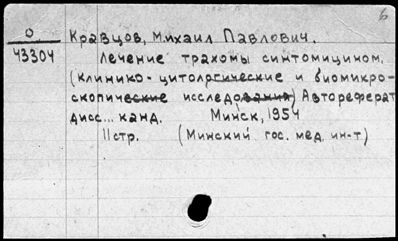 б
О Кравцов, Михаил Павлович.
43304 Лечение трахомы синтомицином.
(клинико-цитологические и биомикро-
скопические исследования) Автореферат
дисс... канд. Минск, 1954
11стр. (Минский гос. мед. ин-т)